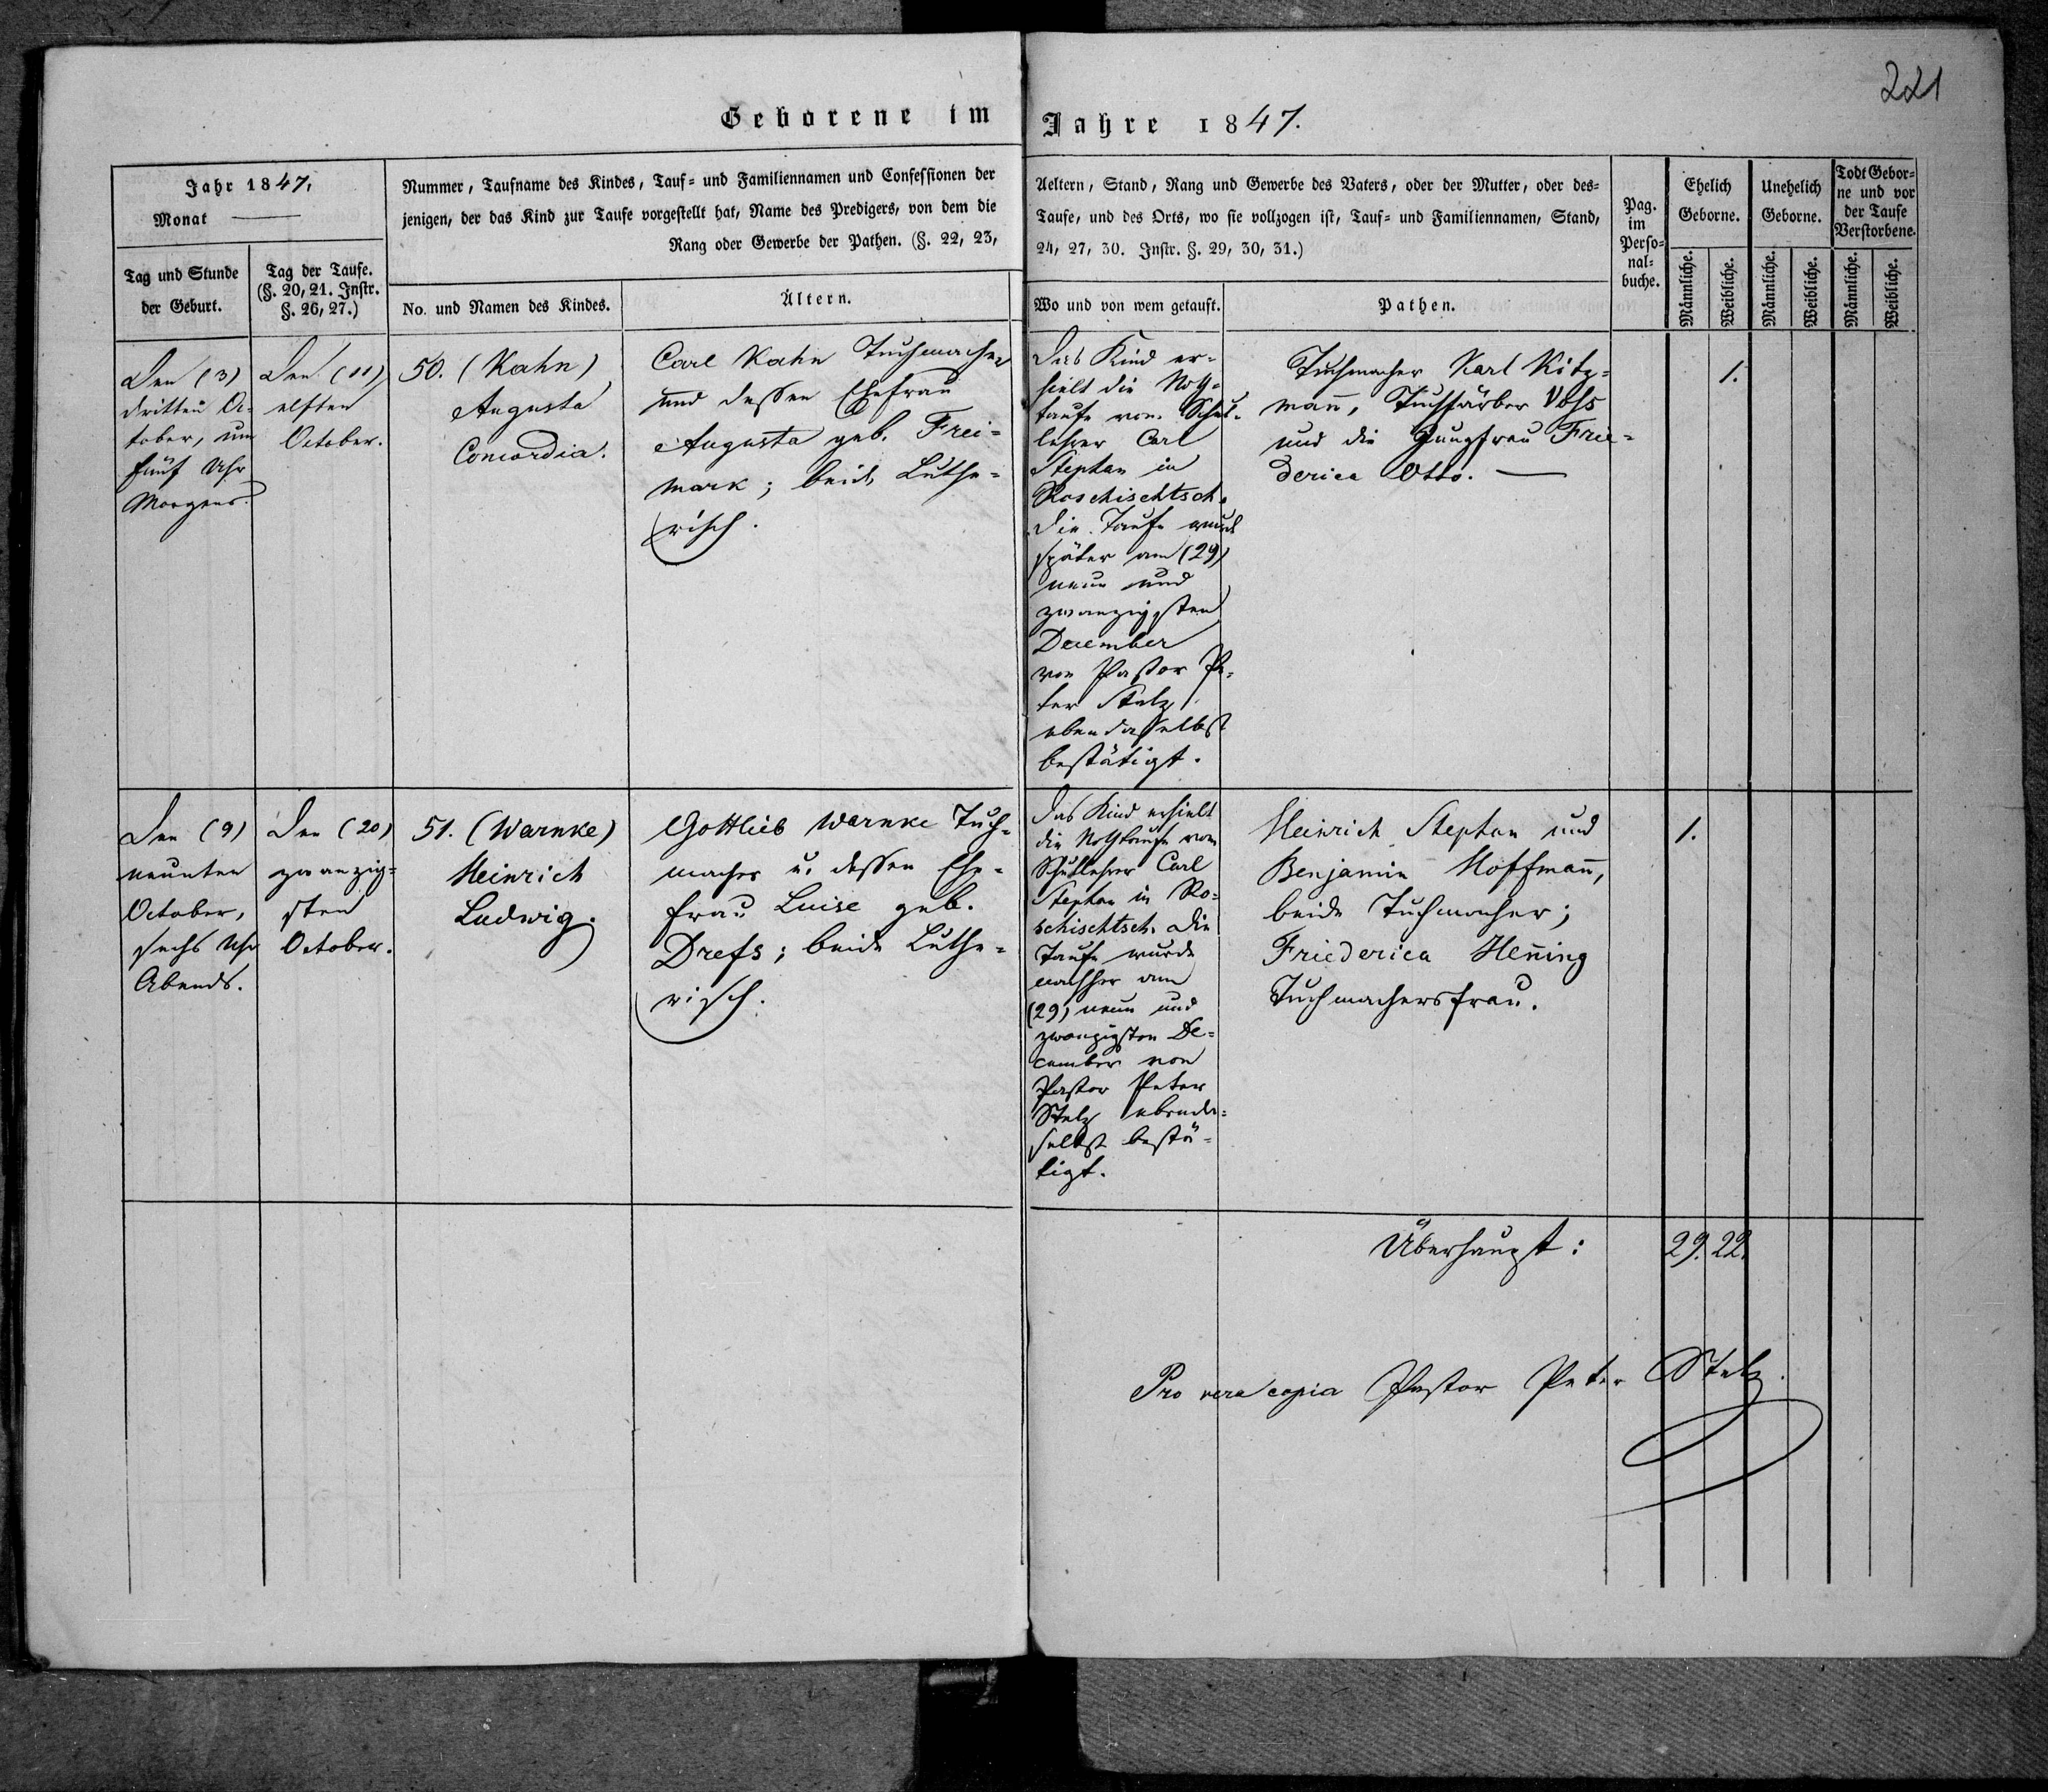 221
Geborene im Jahre 1847.
Jahr 1847.
Monat
Tag und Stunde
der Geburt.
Tag der Taufe.
(§. 20, 21. Instr.
§. 26, 27.)
Nummer, Taufname des Kindes, Tauf- und Familiennamen und Confessionen der
jenigen, der das Kind zur Taufe vorgestellt hat, Name des Predigers, von dem die
Rang oder Gewerbe der Pathen. (§. 22, 23,
No. und Namen des Kindes.
Ältern.
Aeltern, Stand, Rang und Gewerbe des Vaters, oder der Mutter, oder des-
Taufe, und des Orts, wo sie vollzogen ist, Tauf- und Familiennamen, Stand,
24, 27, 30. Instr. §. 29, 30, 31.)
Wo und von wem getauft.
Pathen.
Pag.
im
Perso-
nal-
buche.
Ehelich
Geborne.
Unehelich
Geborne.
Todt Gebor-
ne und vor
der Taufe
Verstorbene.
Männliche.
Weibliche.
Männliche.
Weibliche.
Männliche.
Weibliche.
Den (3)
dritten Oc-
tober, um
fünf Uhr
Morgens.
Den (11)
elften
October.
50. (Kahn)
Augusta
Concordia.
Carl Kahn Tuchmacher
und dessen Ehefrau
Augusta geb. Frei-
mark; beide Luthe-
risch.
Das Kind er-
hielt die Noth-
taufe vom Schul-
lehrer Carl
Stephan in
Roschischtsch.
Die Taufe wurde
später am (29)
neun und
zwanzigsten
December
von Pastor Pe-
ter Stelz
ebendaselbst
bestätigt.
Tuchmacher Karl Kitz-
mann, Tuchfärber Vohs
und die Jungfrau Frie-
derica Otto.
1.
Den (9)
neunten
October,
sechs Uhr
Abends.
Den (20)
zwanzig-
sten
October.
51. (Warnke)
Heinrich
Ludwig.
Gottlieb Warnke Tuch-
macher u. dessen Ehe-
frau Luise geb.
Drefs; beide Luthe-
risch.
Das Kind erhielt
die Nothtaufe vom
Schullehrer Carl
Stephan in Ro-
schischtsch. Die
Taufe wurde
nachher am
(29) neun und
zwanzigsten De-
cember von
Pastor Peter
Stelz ebenda-
selbst bestä-
tigt.
Heinrich Stephan und
Benjamin Hoffmann,
beide Tuchmacher;
Friederica Hen̅ing
Tuchmachersfrau.
1.
Überhaupt: 29. 22.
Pro vera copia Pastor Peter Stelz.